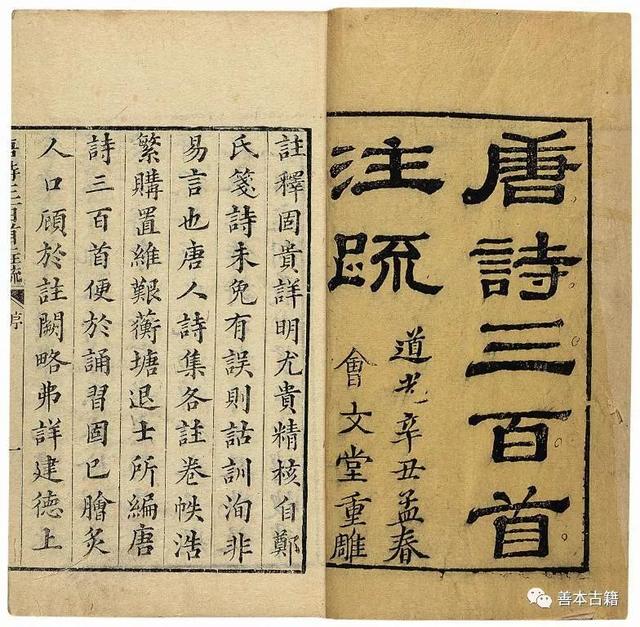 唐詩三百首
注䟽
道光辛丑孟春
會文堂重雕
註釋固貴詳明尤貴精核自鄭
氏箋詩未免有誤則詁訓洵非
易言也唐人詩集各註卷帙浩
繁購置維艱蘅塘退士所編唐
詩三百首便於誦習固已膾炙
人口顧於註闕略弗詳建德上
唐詩三百首註疏
序
一
善本古籍